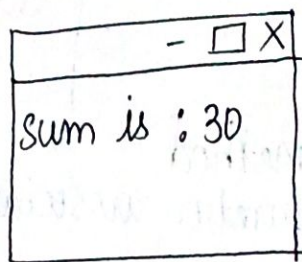 - □ X
sum is : 30